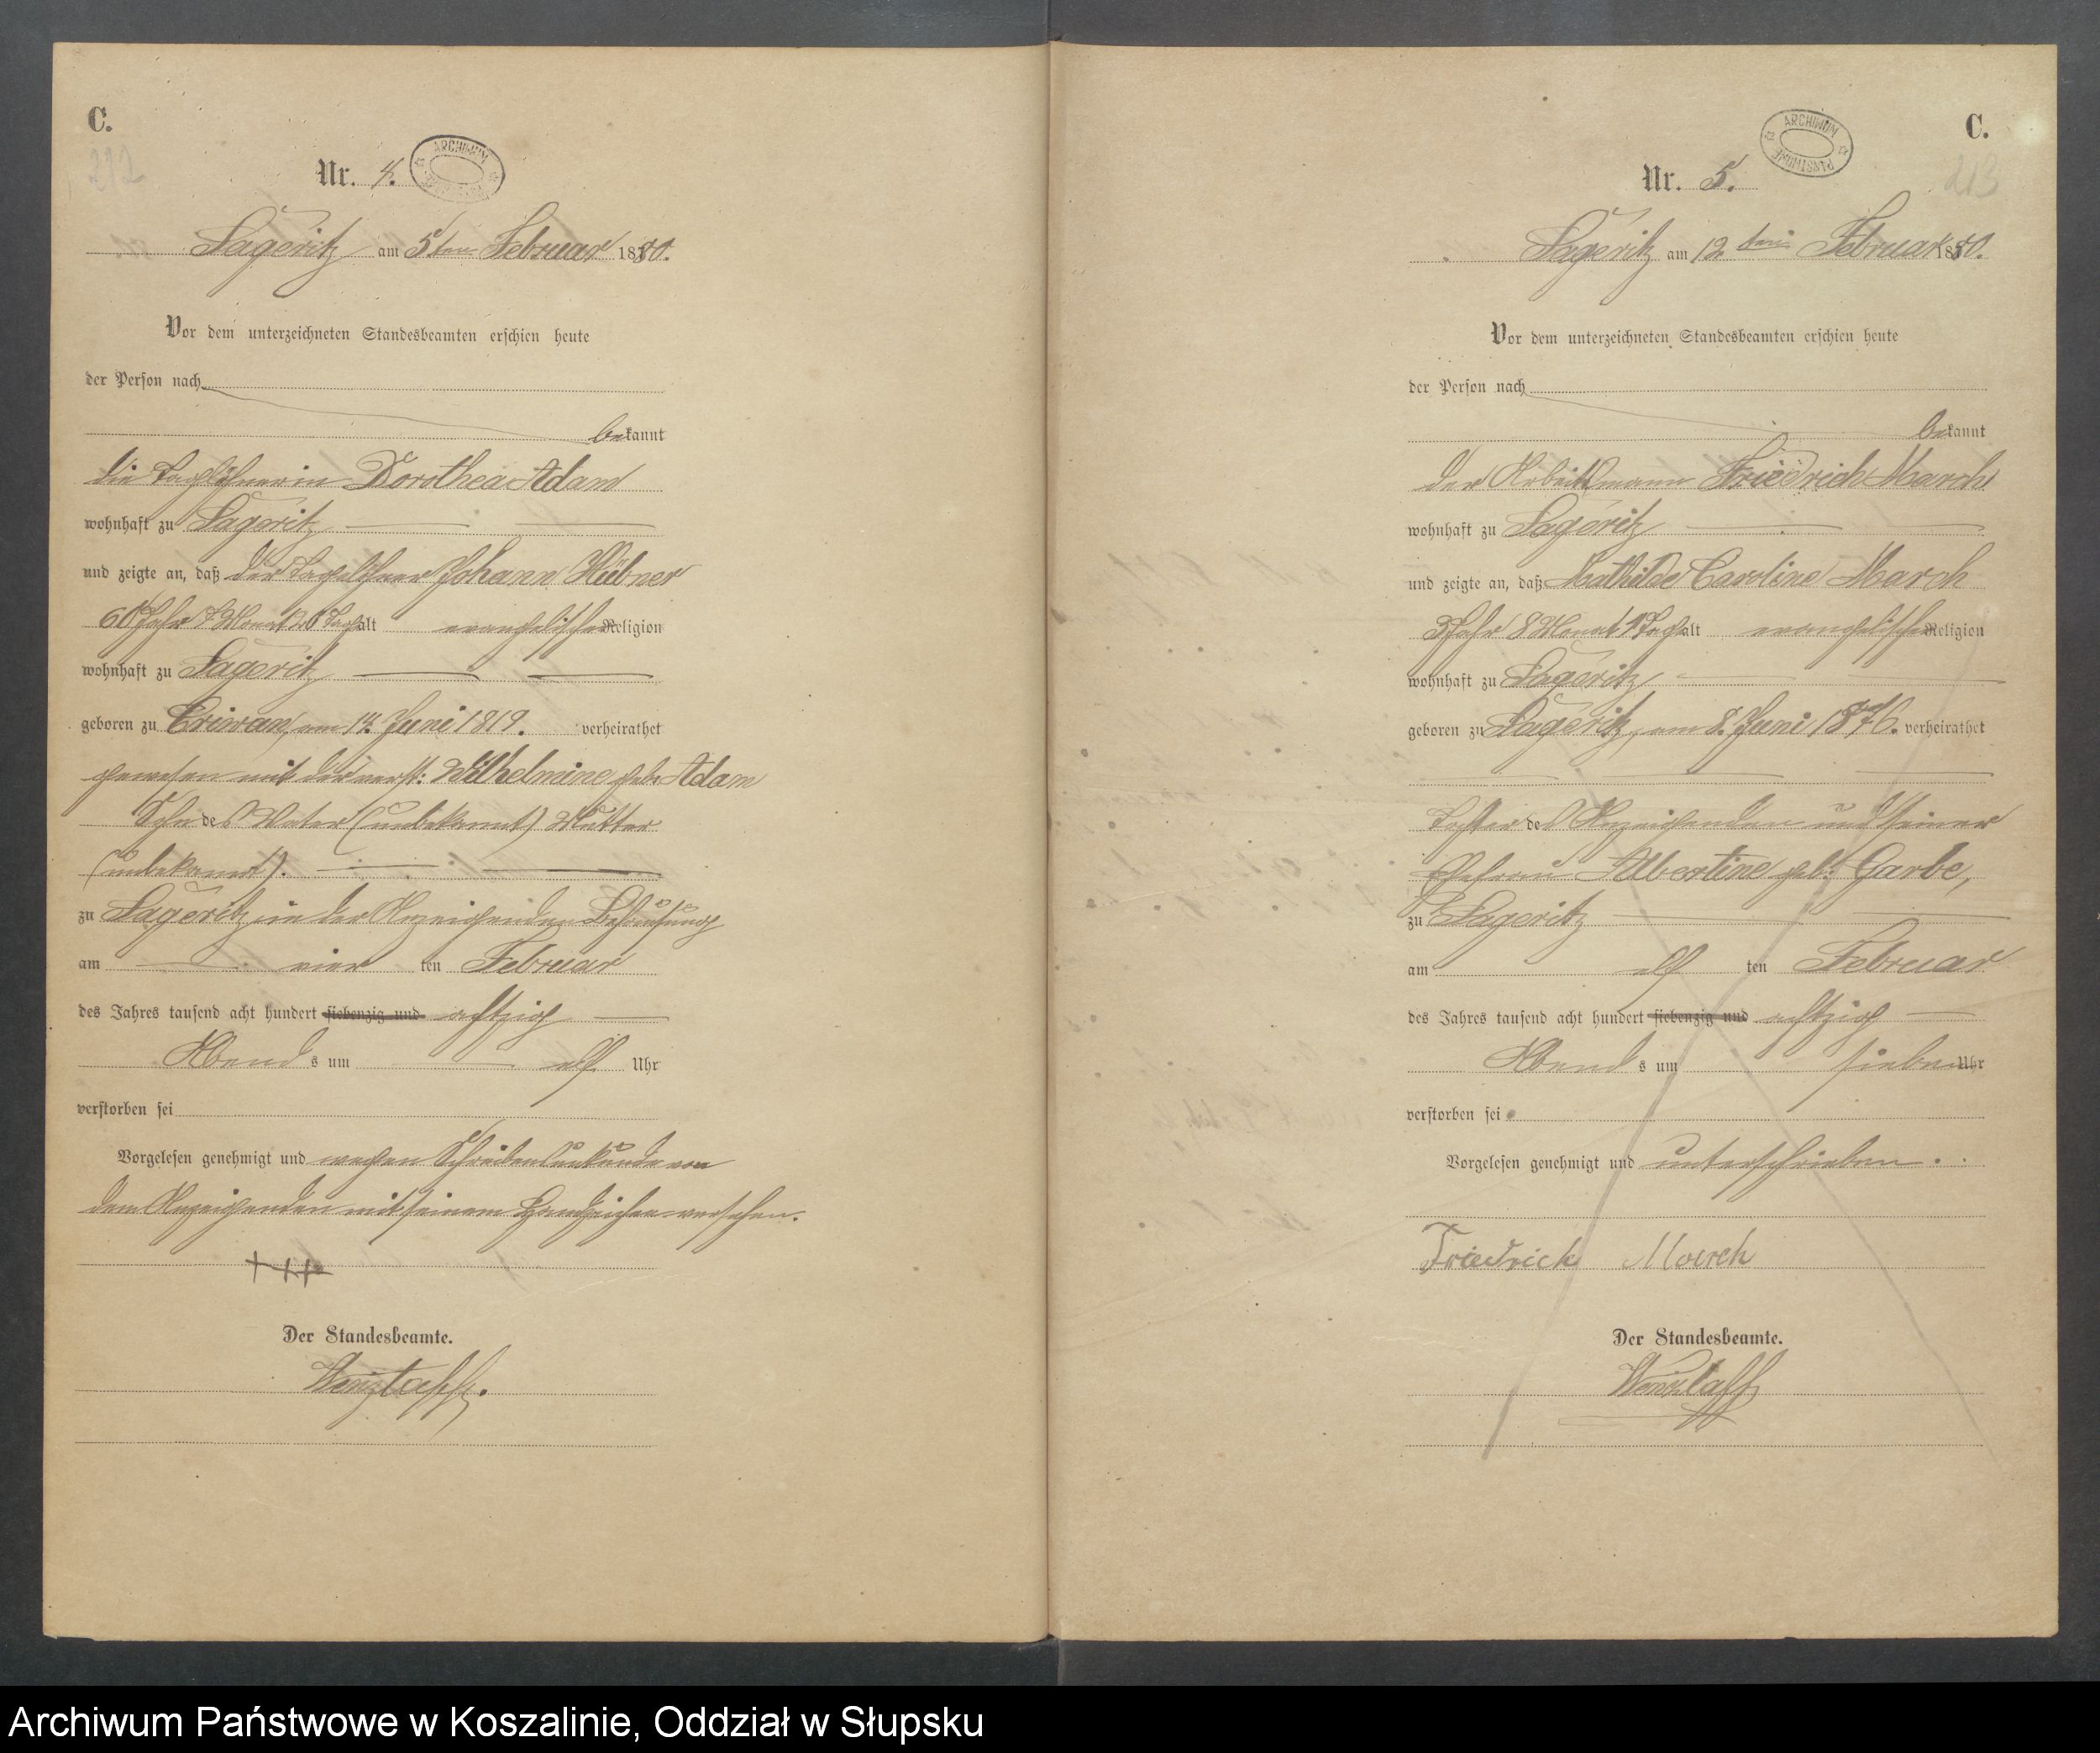 C.
212
Nr. 4.
ARCHIWUM
Lageritz am 5ten Februar 1880.
Vor dem unterzeichneten Standesbeamten erschien heute
der Person nach
bekannt
die Taglöhnerin Dorothea Adam
wohnhaft zu Lageritz
und zeigte an, daß der Tagelöhner Johann Hübner
60 Jahr 7 Monat 20 Tage alt evangelischer Religion
wohnhaft zu Lageritz
geboren zu Criwan, am 14. Juni 1819. verheirathet
gewesen mit der verst: Wilhelmine geb. Adam
Sohn des Vater (unbekannt) Mutter
(unbekannt).
zu Lageritz in der Anzeigenden Behausung
am vier ten Februar
des Jahres tausend acht hundert siebenzig und achtzig
Abend s um elf Uhr
verstorben sei
Vorgelesen genehmigt und wegen Schreibensunkunde von
dem Anzeigenden mit seinem Handzeichen versehen.
+++
Der Standesbeamte.
Wenzlaff.
C.
213
ARCHIWUM PAŃSTWOWE
Nr. 5.
Lageritz am 12ten Februar 1880.
Vor dem unterzeichneten Standesbeamten erschien heute
der Person nach
bekannt
der Arbeitsmann Friedrich March
wohnhaft zu Lageritz
und zeigte an, daß Mathilde Caroline March
3 Jahr 8 Monat 1 Tag alt evangelischer Religion
wohnhaft zu Lageritz
geboren zu Lageritz, am 8. Juni 1876. verheirathet
Tochter des Anzeigenden und seiner
Ehefrau Albertine geb. Garbe,
zu Lageritz
am elf ten Februar
des Jahres tausend acht hundert siebenzig und achtzig
Abend s um sieben Uhr
verstorben sei
Vorgelesen genehmigt und unterschrieben.
Friedrich March
Der Standesbeamte.
Wenzlaff
Archiwum Państwowe w Koszalinie, Oddział w Słupsku